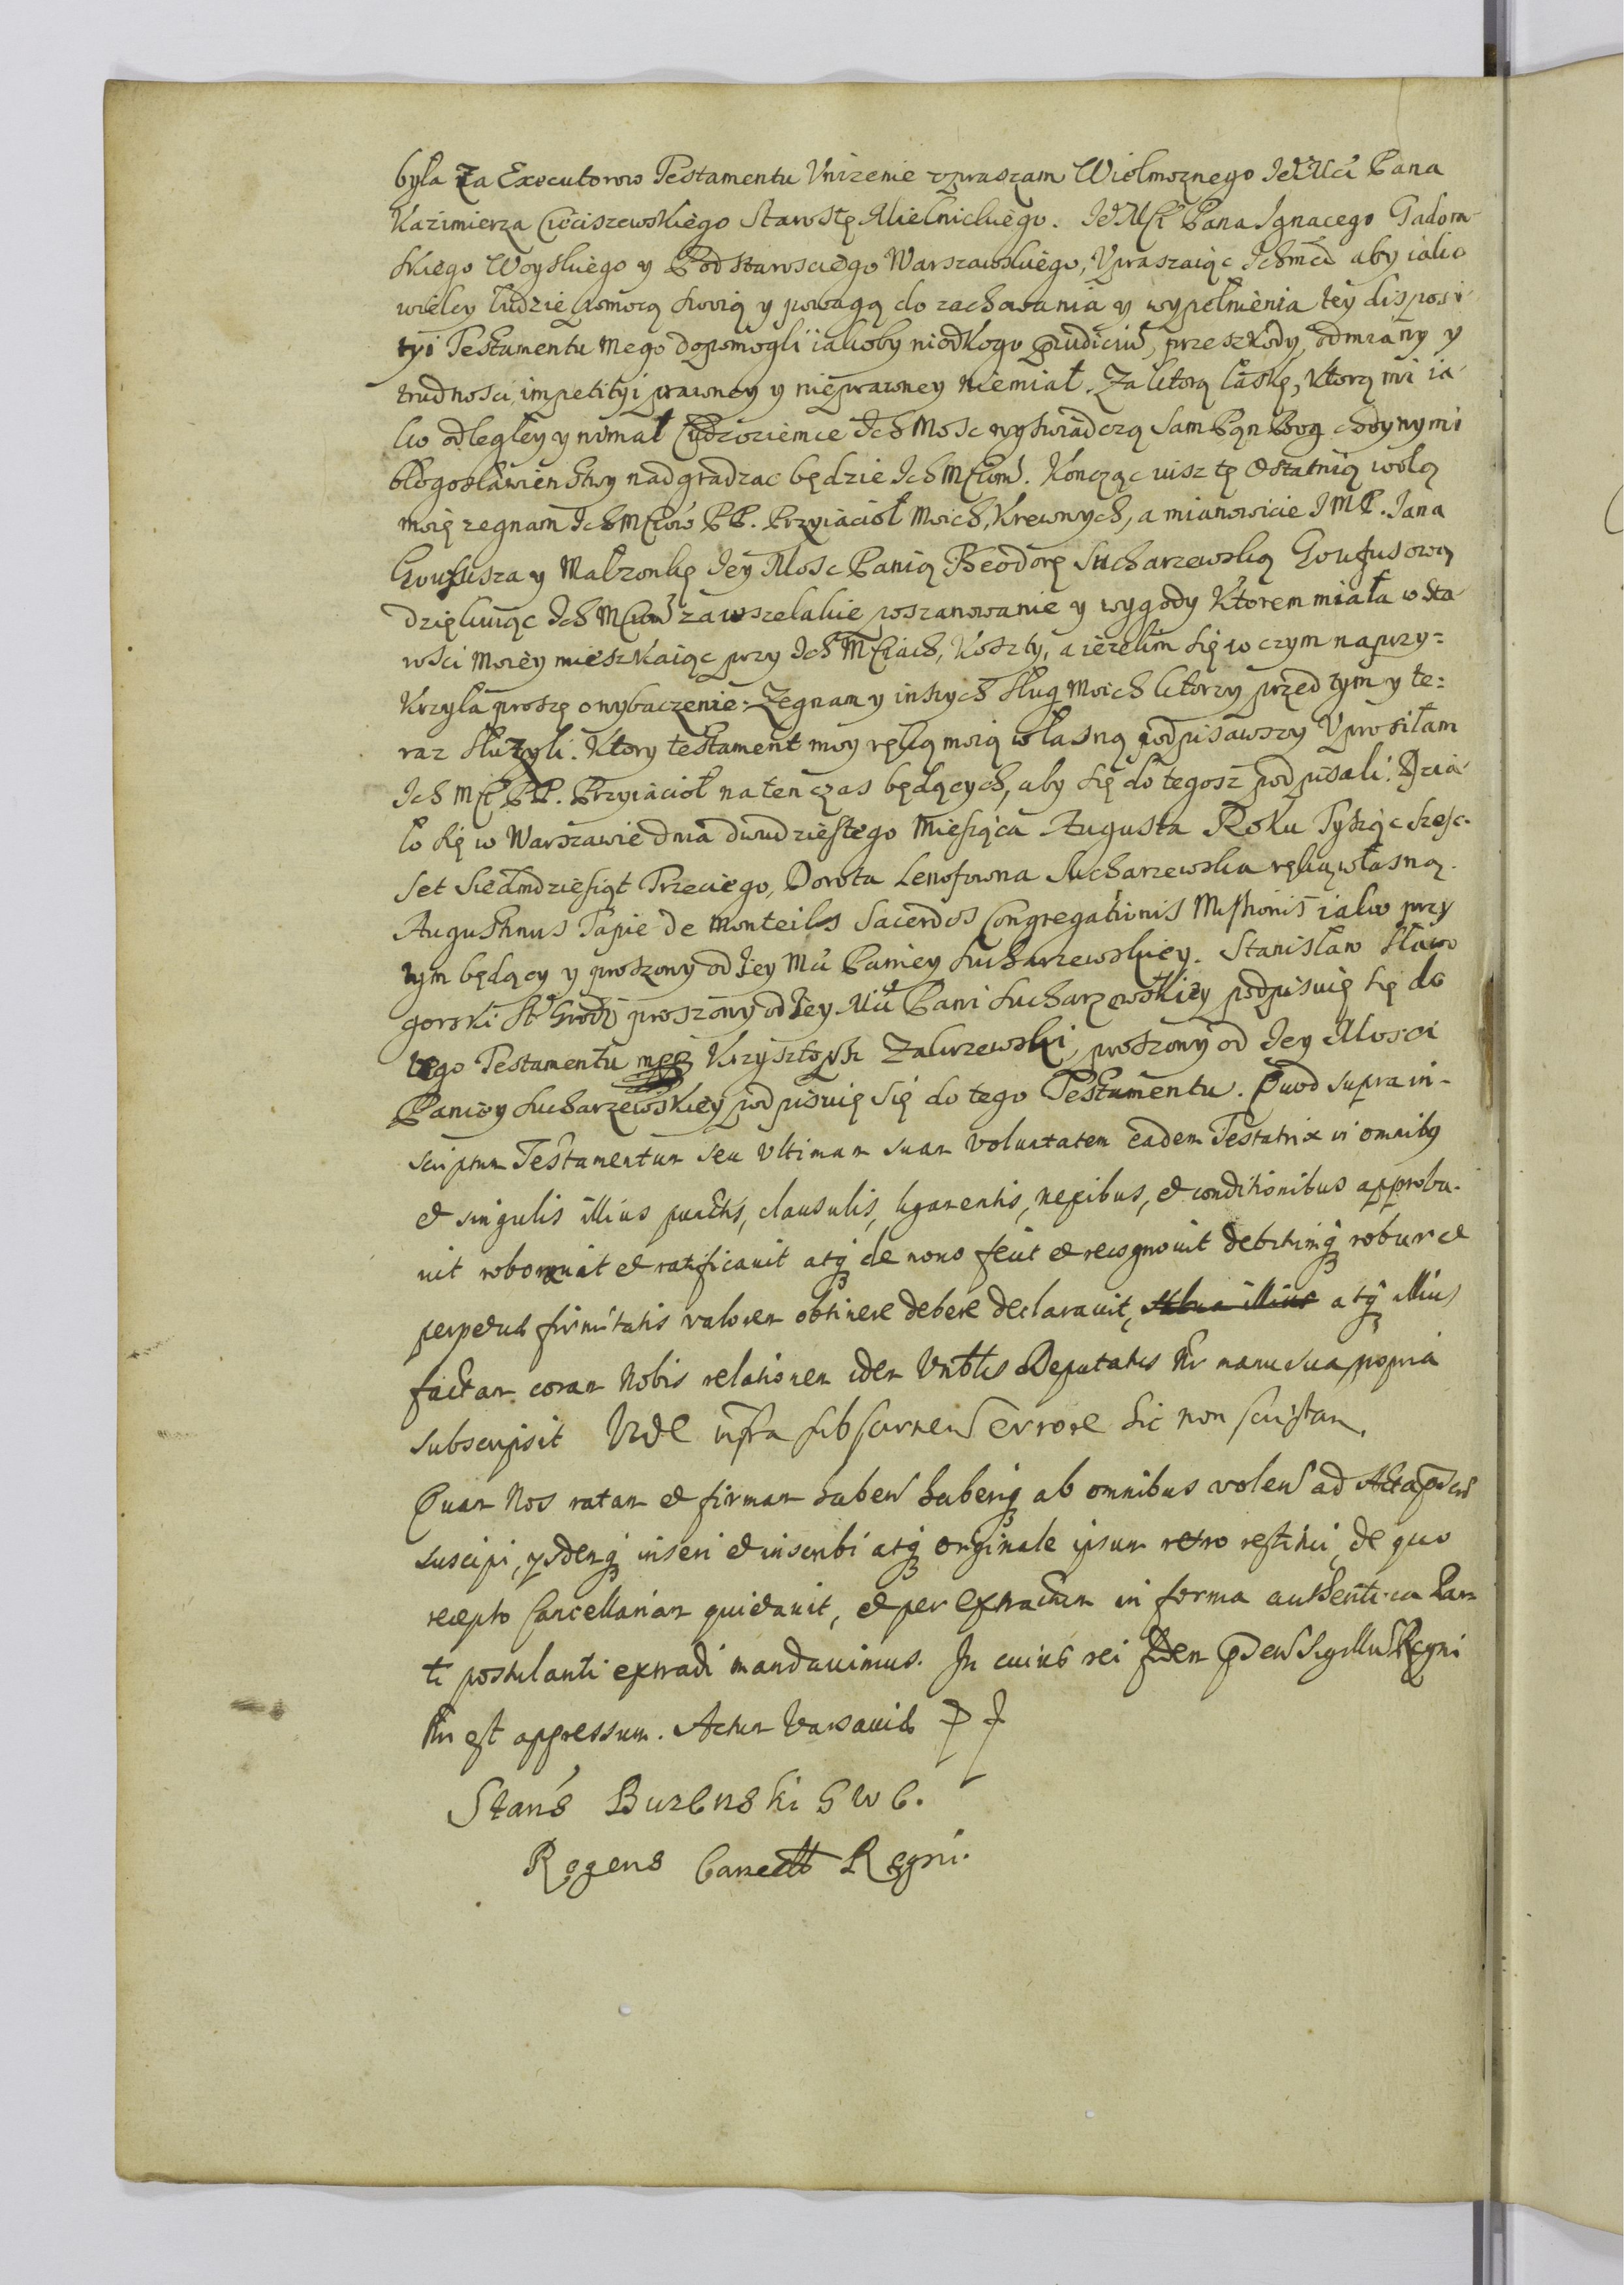 była Za Executorow Testamentu Unizenie upraszam Wielmoznego Je͠ Mci Pana
Kazimierza Cieciszewskiego Starostę Mielnickiego. Je͠ Mći Pana Ignacego Gadom-
skiego Woyskiego y Podstarosciego Warszawskiego, Upraszaiąc Ichmci aby iako
wielcy ludzie pomocą swoią y powagą do zachowania y wypełnienia tey disposi-
tyi Testamentu mego dopomogli iakoby niodkogo przeszkody, odmiany y
trudnosci, impetityi prawney y nieprawney niemiał. Za ktorą łaskę, ktorą mi ia-
ko odległey y niemal Cudzoziemce Ich Mosc wyswiadczą Sam Pąn Bog
błogosławienstwy nadgradzac będzie Ich Mciom. Kończąc uisz tę Ostatnią wolą
moię zegnam Ich Mciow PP. Przyiacioł Moich, Krewnych, a mianowicie JMP. Jana
y Małzonkę Jey Mosc Panią Theodorę Sucharzewską
dziękuiąc Ich Mciom zawszelakie poszanowanie y wygody Ktorem miała w sta-
rosci moiey mieszkaiąc przy Ich Mciach, Koszty, a iezelim się w czym naprzy=
krzyła proszę o wybaczenie. Zegnam y inszych sług moich ktorzy przed tym y te=
raz słuzyli. Ktory testament moy ręką moią własną podpisawszy Uprosiłam
Ich Mć PP. Przyiacioł na ten czas będących, aby się do tegosz podpisali. Dzia-
ło się w Warszawie dnia dwudziestego Miesiąca Augusta Roku Tysiąc szesc-
set Siedmdziesiąt Trzeciego, Dorota Lenofowna Sucharzewska ręką własną.
Augustinus Tapie de Monteils Sacerdos Congregationis Missionis iako przy
tym będący y proszony od Jey Mci Paniey Sucharzewskiey. Stanisław Sławo
gorski proszony od Jey Mci Pani Sucharzewskiey podpisuię się do
tego Testamentu mpp Krzysztoph Zakrzewski, proszony od Jey Mosci
Paniey Sucharzewskiey podpisuię się do tego Testamentu. Quod supra in-
scriptum Testamentum seu Ultimam suam voluntatem eadem Testatrix in omnibꝰ
et singulis illius punctis, clausulis, ligamentis, nexibus, et conditionibus approba-
uit roborauit et ratificauit atq̃ de nouo fecit et recognouit debitumq̃ robur et
perpetuæ firmitatis valorem obtinere debere declarauit, ~~salua illius~~ atq̃ illius
factam coram Nobis relationem idem Deputatus manu sua propria
subscripsit
Quam Nos ratam et firmam haben͠ haberiq̃ ab omnibus volen͠ ad Acta
suscipi, ysdemq̃ inseri et inscribi atq̃ originale ipsum retro restitui, de quo
recepto Cancellariam quietauit, et per extractum in forma authentica Par-
ti postulanti extradi mandauimus. In cuius rei fidem Sigillu͠ Regni
est appressum. Actum Varsauiæ
Stans Buzenski
Regens Cancell Regni.